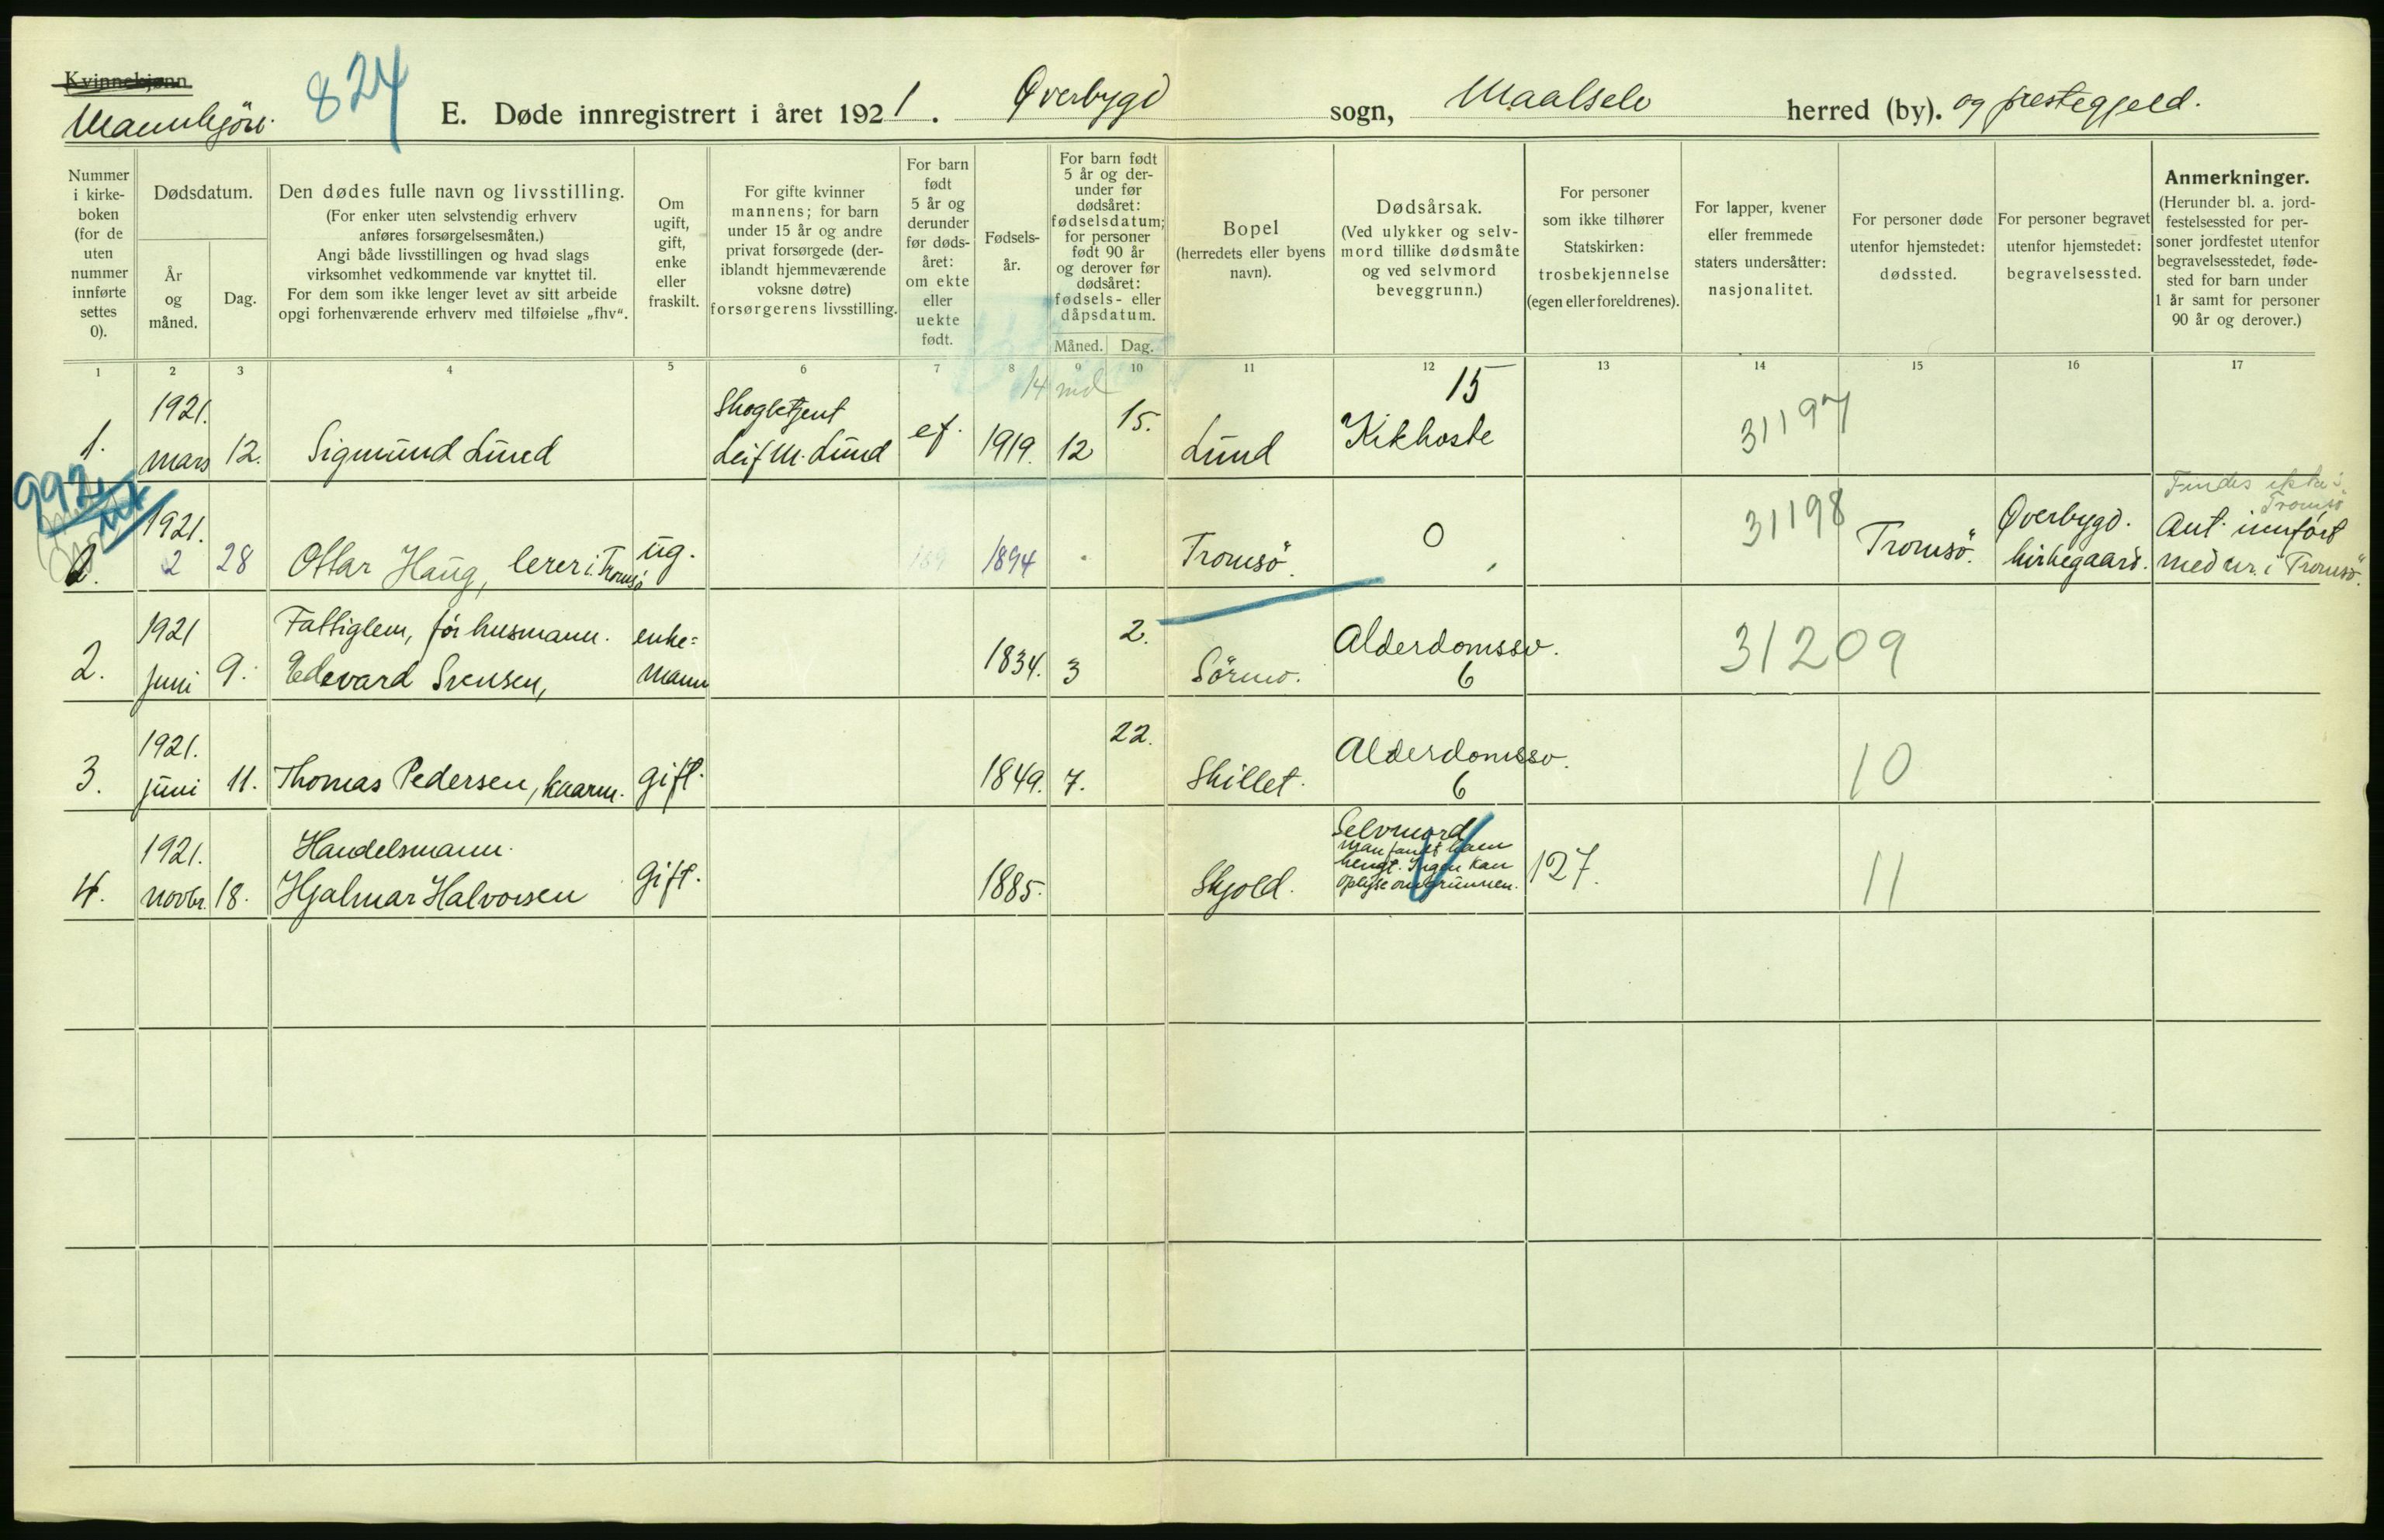 Kvinnekjønn.
Mannkjön.
824
E. Døde innregistrert i året 1921. Øverbygd sogn, Maalselv herred (by). og prestegjeld.
Nummer i kirke-boken (for de uten nummer innførte settes 0).
Dødsdatum.
År og måned.
Dag.
Den dødes fulle navn og livsstilling.
(For enker uten selvstendig erhverv
anføres forsørgelsesmåten.)
Angi både livsstillingen og hvad slags
virksomhet vedkommende var knyttet til.
For dem som ikke lenger levet av sitt arbeide
opgi forhenværende erhverv med tilføielse „fhv“.
Om
ugift,
gift,
enke
eller
fraskilt.
For gifte kvinner
mannens; for barn
under 15 år og andre
privat forsørgede (der-
iblandt hjemmeværende
voksne døtre)
forsørgerens livsstilling.
For barn
født
5 år og
derunder
før døds-
året:
om ekte
eller
uekte
født.
Fødsels-
år.
For barn født
5 år og der-
under før
dødsåret:
fødselsdatum;
for personer
født 90 år
og derover før
dødsåret:
fødsels- eller
dåpsdatum.
Måned. Dag.
Bopel
(herredets eller byens
navn).
Dødsårsak.
(Ved ulykker og selv-
mord tillike dødsmåte
og ved selvmord
beveggrunn.)
For personer
som ikke tilhører
Statskirken:
trosbekjennelse
(egen eller foreldrenes).
For lapper, kvener
eller fremmede
staters undersåtter:
nasjonalitet.
For personer døde
utenfor hjemstedet:
dødssted.
For personer begravet
utenfor hjemstedet:
begravelsessted.
Anmerkninger.
(Herunder bl. a. jord-
festelsessted for per-
soner jordfestet utenfor
begravelsesstedet, føde-
sted for barn under
1 år samt for personer
90 år og derover.)
1 2 3 4 5 6 7 8 9 10 11 12 13 14 15 16 17
14 md
1921. Skogbetjent 15. 15
1. mars 12. Sigmund Lund Leif M. Lund ef. 1919. 12 Lund Kikhoste 31197
992
Findes ikke i
Tromsö
1921. Øverbygd. Ant. innfört
2 28 Ottar Haug, lerer i Tromsö ug. 1894 Tromsö. 0 31198 Tromsö. kirkegaard. med nr. i Tromsö.
1921 Fattiglem, för husmann. enke= 2. Alderdomssv.
2. juni 9. Edevard Svensen, mann 1834. 3 Sörmo. 6 31209
1921. 22. Alderdomssv.
3. juni 11. Thomas Pedersen, kaarm. gift. 1849. 7. Skillet. 6 10
1921. Handelsmann. Selvmord
man fandt ham
hengt. Ingen kan
oplyse om grunnen.
4. novbr. 18. Hjalmar Halvorsen gift. 1885. Skjold. 127. 11